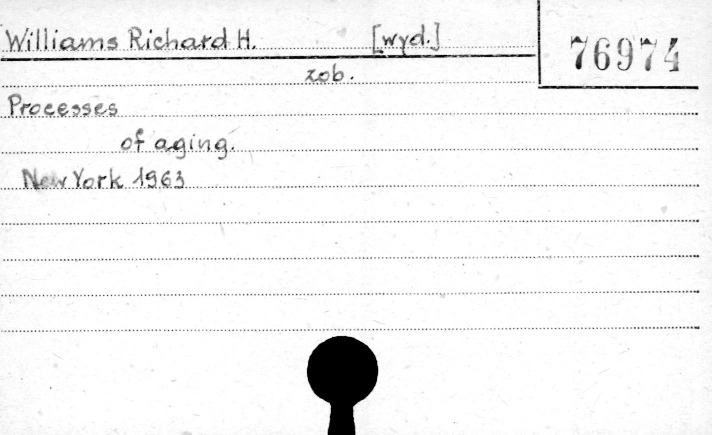 Williams Richard H. [wyd.]
76974
zob.
Processes
of aging.
New York 1963